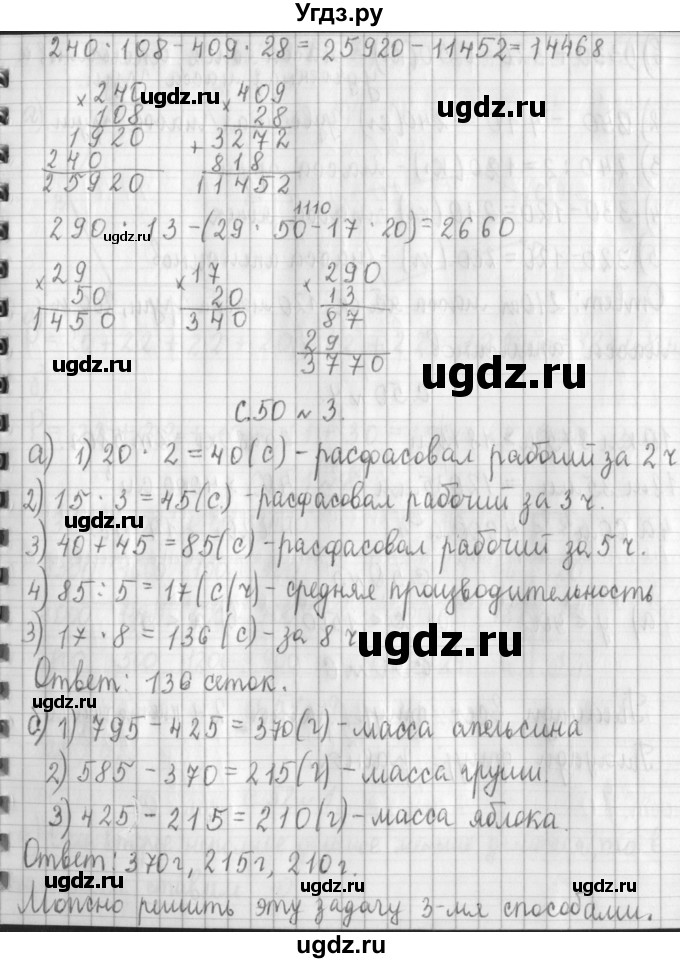 Угдз.ру
240 · 108 - 409 · 28 = 25920 - 11452 = 14468
× 240 × 409
108 28
1920 + 3272
240 818
25920 11452
1110
290 · 13 - (29 · 50 - 17 · 20) = 2660
× 29 × 17 × 290
50 20 13
1450 340 87
29
3770
с.50 № 3.
а) 1) 20 · 2 = 40 (с) - расфасовал рабочий за 2 ч
2) 15 · 3 = 45 (с) - расфасовал рабочий за 3 ч.
3) 40 + 45 = 85 (с) - расфасовал рабочий за 5 ч.
4) 85 : 5 = 17 (с/ч) - средняя производительность
3) 17 · 8 = 136 (с) - за 8 ч
Ответ: 136 сеток.
б) 1) 795 - 425 = 370 (г) - масса апельсина
2) 585 - 370 = 215 (г) - масса груши.
3) 425 - 215 = 210 (г) - масса яблока.
Ответ: 370 г, 215 г, 210 г.
Можно решить эту задачу 3-мя способами.
ugdz.ru
ugdz.ru
ugdz.ru
ugdz.ru
ugdz.ru
ugdz.ru
ugdz.ru
ugdz.ru
ugdz.ru
ugdz.ru
ugdz.ru
ugdz.ru